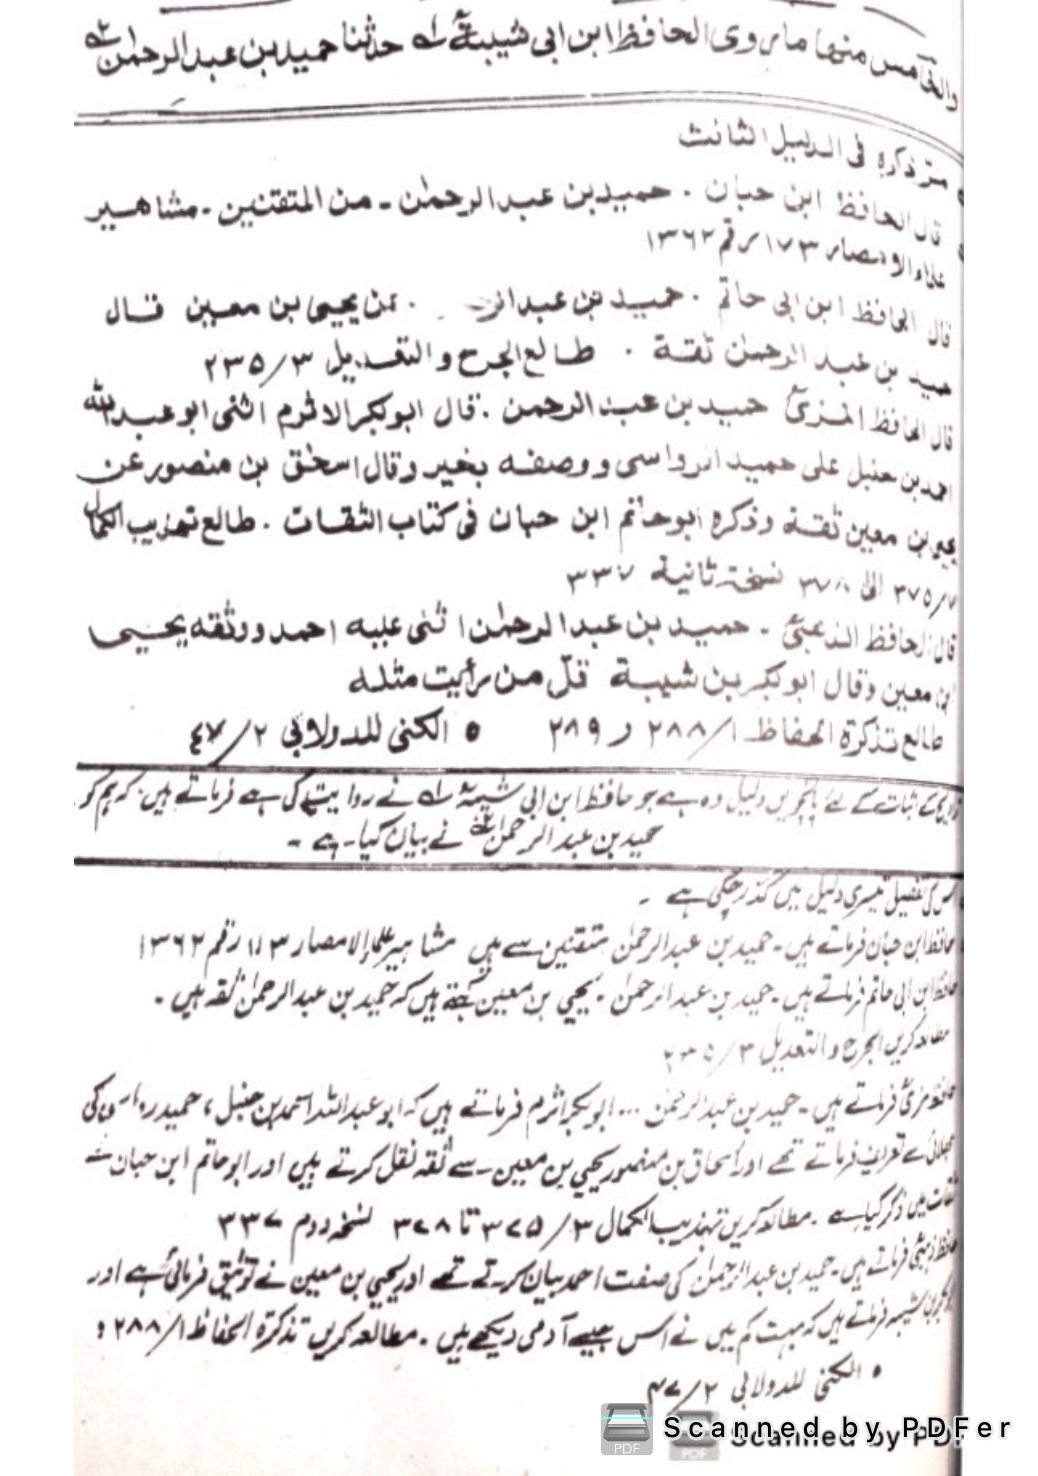 والخامس منها ما روى الحافظ ابن ابى شيبة حدثنا حميد بن عبد الرحمٰن
مر ذكره فى الدليل الثالث
قال الحافظ ابن حبان . حميد بن عبد الرحمٰن - من المتقنين - مشاهير
علماء الامصار ١٧٣ رقم ١٣٦٢
قال الحافظ ابن ابى حاتم . حميد بن عبد . عن يحيىٰ بن معين قال
حميد بن عبد الرحمٰن ثقة . طالع الجرح والتعديل ٢٣٥/٣
قال الحافظ المزىؒ حميد بن عبد الرحمن . قال ابوبكر الاثرم اثنى ابو عبد الله
احمد بن حنبل على حميد الرواسى ووصفه بخير وقال اسحٰق بن منصور عن
يحيى بن معين ثقة وذكره ابو حاتم ابن حبان فى كتاب الثقات . طالع تهذيب الكمال
٣٧٥/٧ الىٰ ٣٧٨ نسخة ثانية ٣٣٧
قال الحافظ الذهبىؒ . حميد بن عبد الرحمٰن اثنى عليه احمد ووثقه يحيىٰ
ابن معين وقال ابوبكر بن شيبة قلّ من رأيت مثله
طالع تذكرة الحفاظ ٢٨٨/١ و ٢٨٩ ٥ الكنى للدولابى ٤٧/٢
کے اثبات کے لئے پانچویں دلیل وہ ہے جو حافظ ابن ابی شیبہ نے روایت کی ہے فرماتے ہیں . کہ ہم کو
حمید بن عبد الرحمٰن نے بیان کیا ہے -
اس کی تفصیل تیسری دلیل میں گذر چکی ہے -
حافظ ابن حبان فرماتے ہیں - حمید بن عبد الرحمٰن متقنین سے ہیں مشاہیر علماء الامصار رقم ١٣٦٢
حافظ ابن ابی حاتم فرماتے ہیں - حمید بن عبد الرحمٰن . یحییٰ بن معین کہتے ہیں کہ حمید بن عبد الرحمٰن ثقہ ہیں -
مطالعہ کریں الجرح والتعدیل ٢٣٥/٣
حافظ مزیؒ فرماتے ہیں - حمید بن عبد الرحمٰن ... ابوبکر اثرم فرماتے ہیں کہ ابو عبد اللہ احمد بن حنبل ، حمید رواسی کی
بھلائی سے تعریف فرماتے تھے اور اسحاق بن منصور یحییٰ بن معین - سے ثقہ نقل کرتے ہیں اور ابو حاتم ابن حبان نے
ثقات میں ذکر کیا ہے - مطالعہ کریں تہذیب الکمال ٣٧٥/٣ تا ٣٧٨ نسخہ دوم ٣٣٧
حافظ ذہبیؒ فرماتے ہیں - حمید بن عبد الرحمٰن کی صفت احمد بیان کرتے تھے اور یحییٰ بن معین نے توثیق فرمائی ہے اور
ابوبکر بن شیبہ فرماتے ہیں کہ بہت کم میں نے اس جیسے آدمی دیکھے ہیں . مطالعہ کریں تذکرۃ الحفاظ ٢٨٨/١ و
٥ الکنیٰ للدولابی ٤٧/٢
Scanned by PDFer
Scanned by PDF